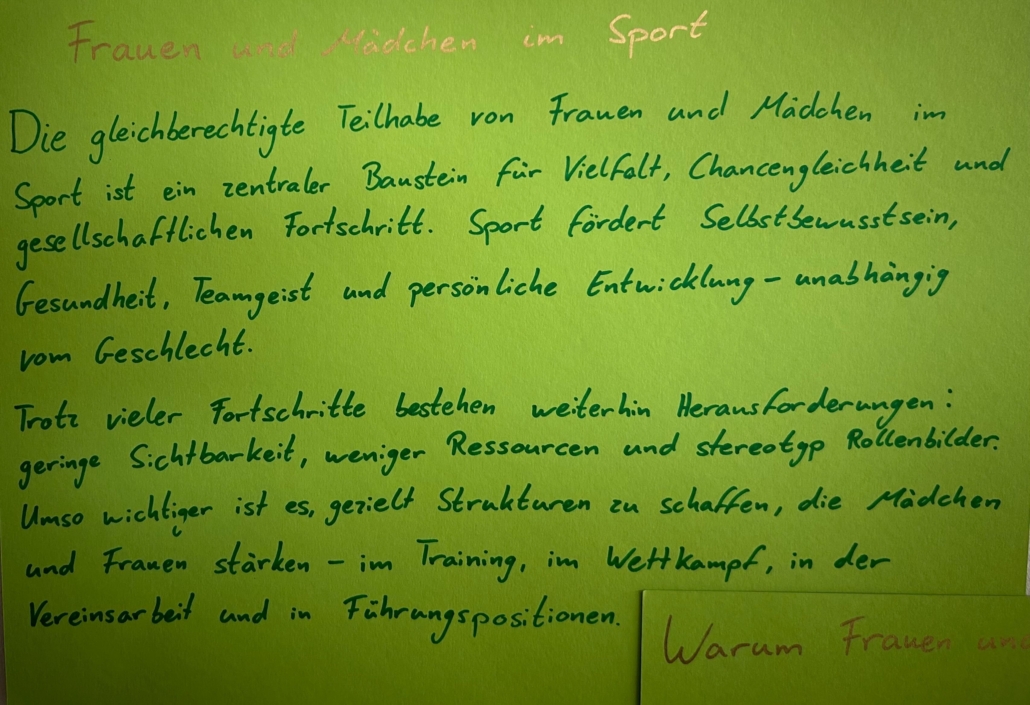 Frauen und Mädchen im Sport
Die gleichberechtigte Teilhabe von Frauen und Mädchen im
Sport ist ein zentraler Baustein für Vielfalt, Chancengleichheit und
gesellschaftlichen Fortschritt. Sport fördert Selbstbewusstsein,
Gesundheit, Teamgeist und persönliche Entwicklung – unabhängig
vom Geschlecht.
Trotz vieler Fortschritte bestehen weiterhin Herausforderungen:
geringe Sichtbarkeit, weniger Ressourcen und stereotyp Rollenbilder.
Umso wichtiger ist es, gezielt Strukturen zu schaffen, die Mädchen
und Frauen stärken – im Training, im Wettkampf, in der
Vereinsarbeit und in Führungspositionen.
Warum Frauen und